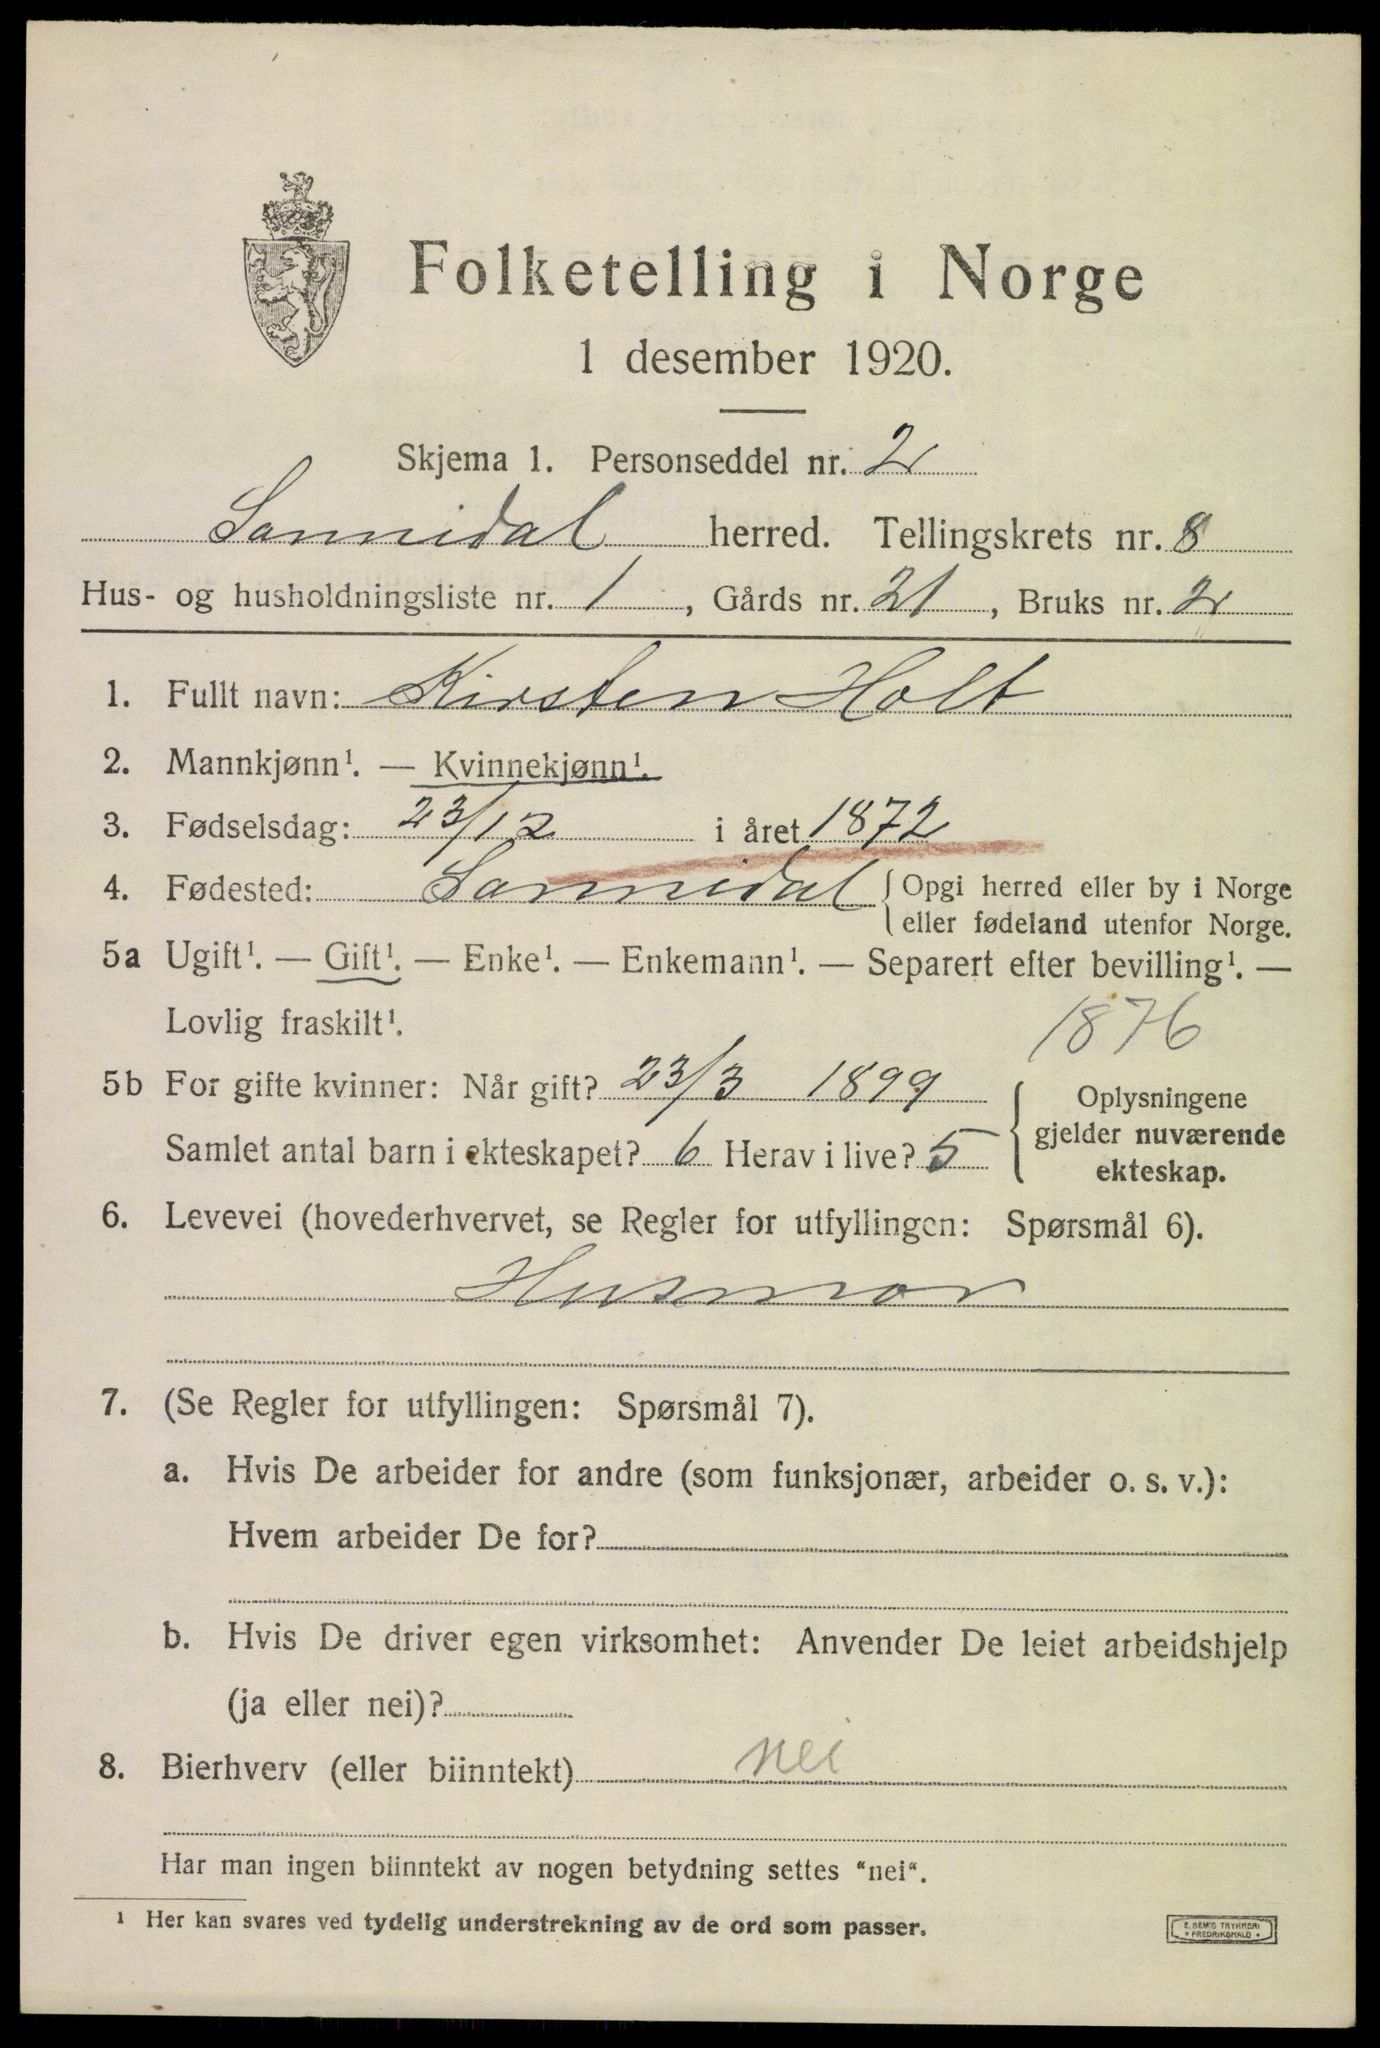 Folketelling i Norge
1 desember 1920.
Skjema 1. Personseddel nr. 2
Sannidal herred. Tellingskrets nr. 8
Hus- og husholdningsliste nr. 1, Gårds nr. 21, Bruks nr. 2
1. Fullt navn: Kirsten Holt
2. Mannkjønn¹. — Kvinnekjønn¹.
3. Fødselsdag: 23/12 i året 1872
4. Fødested: Sannidal { Opgi herred eller by i Norge
eller fødeland utenfor Norge.
5a Ugift¹. — Gift¹. — Enke¹. — Enkemann¹. — Separert efter bevilling¹. —
Lovlig fraskilt¹.
1876
5b For gifte kvinner: Når gift? 23/3 1899
Samlet antal barn i ekteskapet? 6 Herav i live? 5
Oplysningene
gjelder nuværende
ekteskap.
6. Levevei (hovederhvervet, se Regler for utfyllingen: Spørsmål 6).
Husmor
7. (Se Regler for utfyllingen: Spørsmål 7).
a. Hvis De arbeider for andre (som funksjonær, arbeider o. s. v.):
Hvem arbeider De for?
b. Hvis De driver egen virksomhet: Anvender De leiet arbeidshjelp
(ja eller nei)?
8. Bierhverv (eller biinntekt) nei
Har man ingen biinntekt av nogen betydning settes "nei".
¹ Her kan svares ved tydelig understrekning av de ord som passer.
E. SEM'S TRYKKERI
FREDRIKSHALD